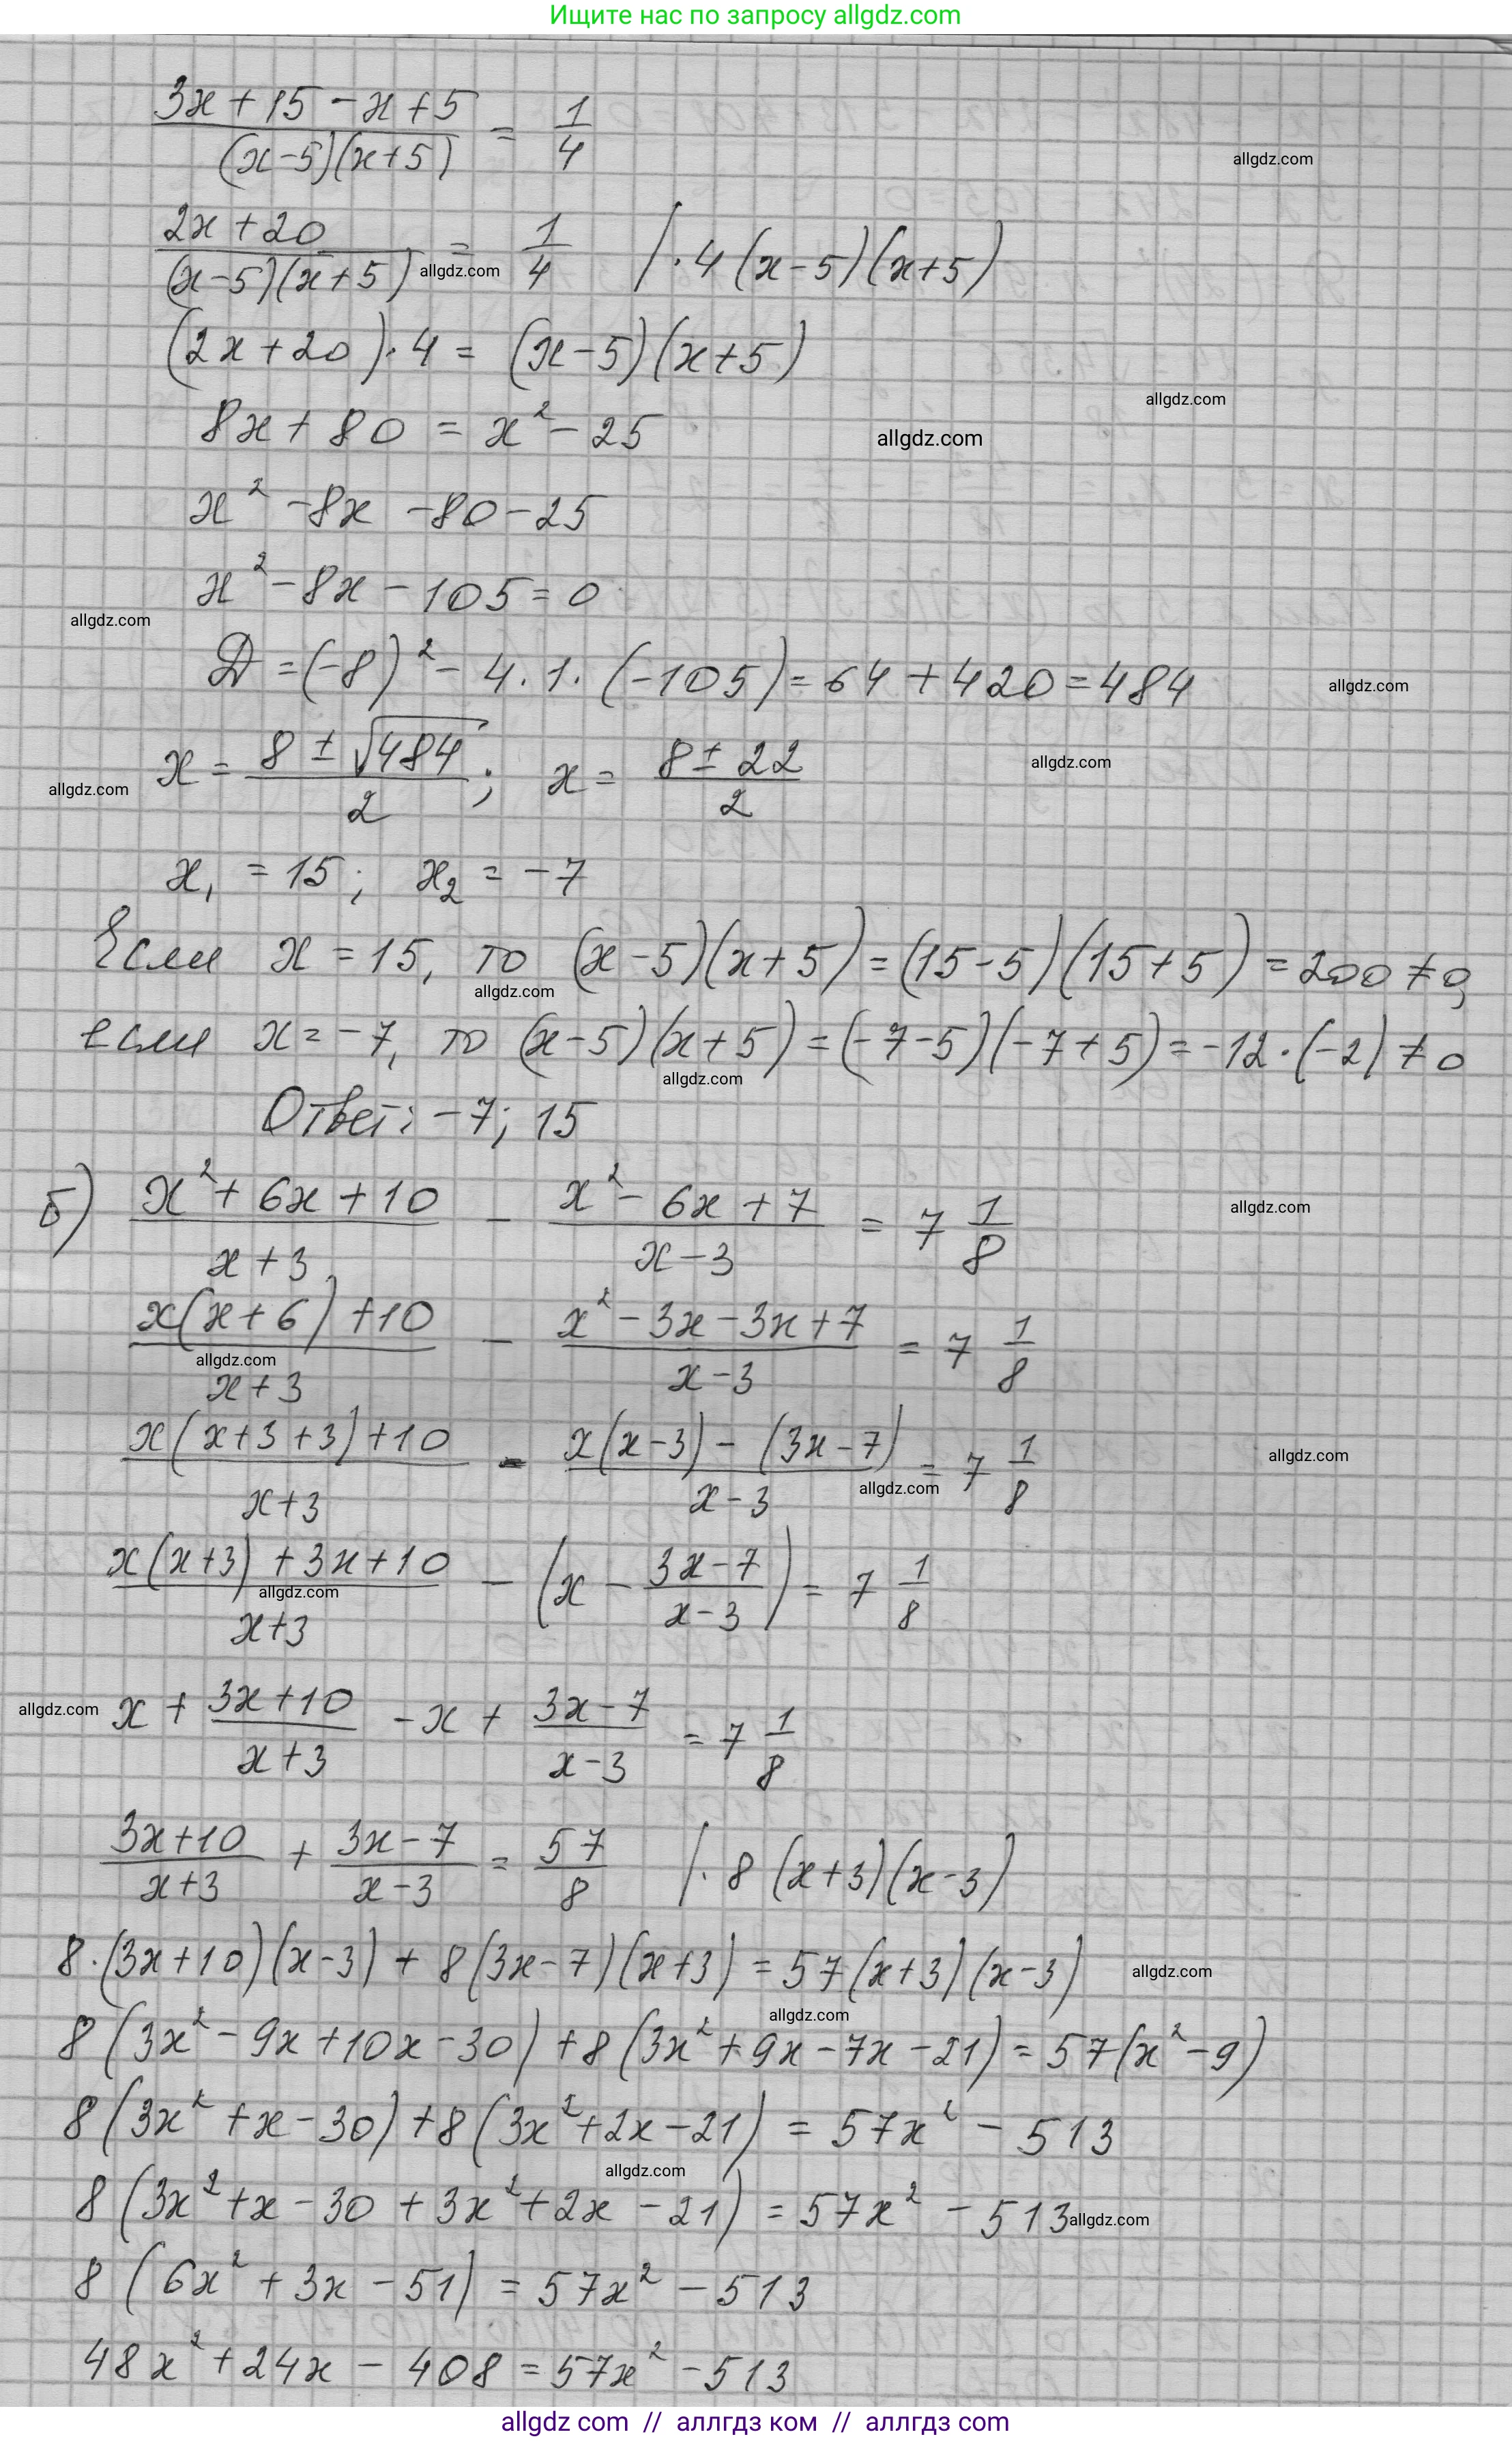 Ищите нас по запросу allgdz.com
(3x + 15 - x + 5)/((x-5)(x+5)) = 1/4
allgdz.com
(2x + 20)/((x-5)(x+5)) = 1/4 | · 4(x-5)(x+5)
allgdz.com
(2x + 20) · 4 = (x-5)(x+5)
allgdz.com
8x + 80 = x² - 25
allgdz.com
x² - 8x - 80 - 25
x² - 8x - 105 = 0
allgdz.com
D = (-8)² - 4 · 1 · (-105) = 64 + 420 = 484
allgdz.com
x = (8 ± √484)/2 ; x = (8 ± 22)/2
allgdz.com
allgdz.com
x₁ = 15; x₂ = -7
Если x = 15, то (x-5)(x+5) = (15-5)(15+5) = 200 ≠ 0,
allgdz.com
если x = -7, то (x-5)(x+5) = (-7-5)(-7+5) = -12 · (-2) ≠ 0
allgdz.com
Ответ: -7; 15
б) (x² + 6x + 10)/(x + 3) - (x² - 6x + 7)/(x - 3) = 7 1/8
allgdz.com
(x(x+6) + 10)/(x+3) - (x² - 3x - 3x + 7)/(x-3) = 7 1/8
allgdz.com
(x(x+3+3) + 10)/(x+3) - (x(x-3) - (3x-7))/(x-3) = 7 1/8
allgdz.com
allgdz.com
(x(x+3) + 3x + 10)/(x+3) - (x - (3x-7)/(x-3)) = 7 1/8
allgdz.com
x + (3x+10)/(x+3) - x + (3x-7)/(x-3) = 7 1/8
allgdz.com
(3x+10)/(x+3) + (3x-7)/(x-3) = 57/8 | · 8(x+3)(x-3)
8 · (3x+10)(x-3) + 8(3x-7)(x+3) = 57(x+3)(x-3)
allgdz.com
allgdz.com
8(3x² - 9x + 10x - 30) + 8(3x² + 9x - 7x - 21) = 57(x² - 9)
8(3x² + x - 30) + 8(3x² + 2x - 21) = 57x² - 513
allgdz.com
8(3x² + x - 30 + 3x² + 2x - 21) = 57x² - 513
allgdz.com
8(6x² + 3x - 51) = 57x² - 513
48x² + 24x - 408 = 57x² - 513
allgdz com // аллгдз ком // аллгдз com